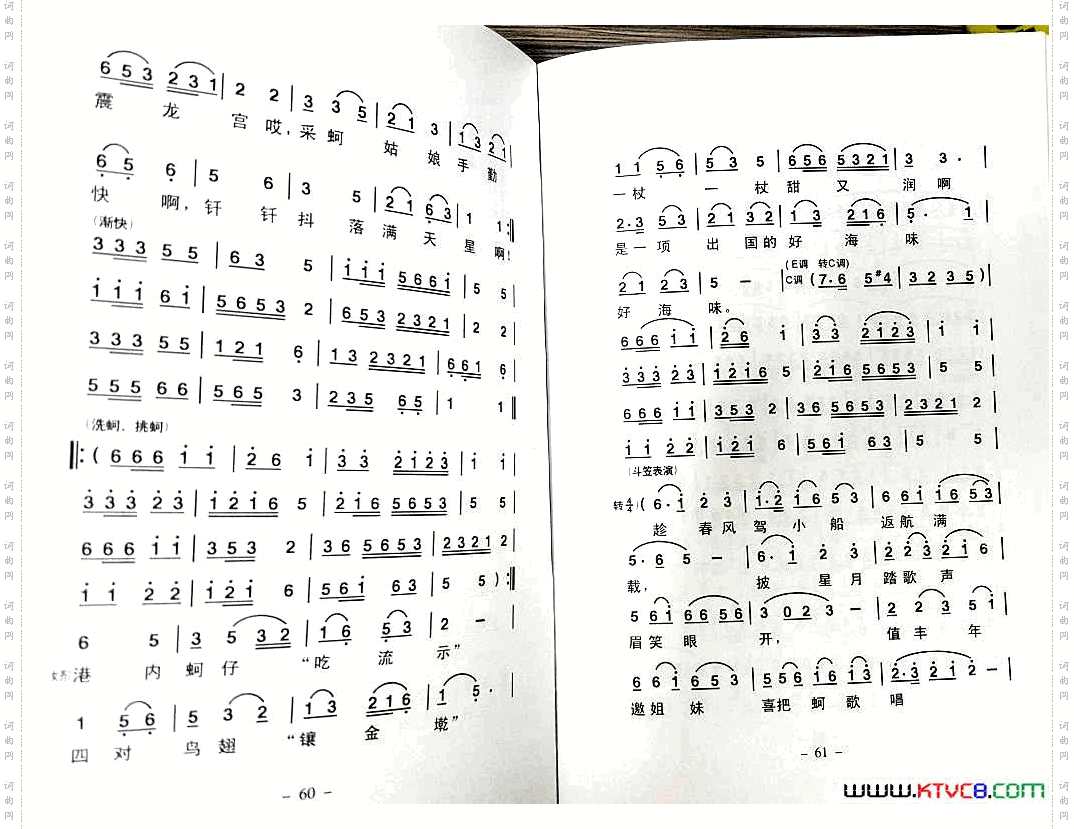 6 5 3 2 3 1 | 2 2 | 3 3 5 | 2 1 3 | 1 3 2 1 |
震 龙 宫 哎，采 蚵 姑 娘 手 勤
6 5 6 | 5 6 | 3 5 | 2 1 6 3 | 1 1 :‖
快 啊，钎 钎 抖 落 满 天 星 啊！
（渐快）
3 3 3 5 5 | 6 3 5 | i i i 5 6 6 i | 5 5 |
i i i 6 i | 5 6 5 3 2 | 6 5 3 2 3 2 1 | 2 2 |
3 3 3 5 5 | 1 2 1 6 | 1 3 2 3 2 1 | 6 6 1 6 |
5 5 5 6 6 | 5 6 5 3 | 2 3 5 6 5 | 1 1 ‖
（洗蚵、挑蚵）
‖: ( 6 6 6 i i | 2 6 i | 3 3 2 1 2 3 | i i |
3 3 3 2 3 | i 2 i 6 5 | 2 i 6 5 6 5 3 | 5 5 |
6 6 6 i i | 3 5 3 2 | 3 6 5 6 5 3 | 2 3 2 1 2 |
i i 2 2 | i 2 i 6 | 5 6 i 6 3 | 5 5 ) :‖
6 5 | 3 5 3 2 | 1 6 5 3 | 2 － |
港 内 蚵 仔 “吃 流 示”
1 5 6 | 5 3 2 | 1 3 2 1 6 | 1 5 · |
四 对 鸟 翅 “镶 金 墘”
－ 60 －
1 1 5 6 | 5 3 5 | 6 5 6 5 3 2 1 | 3 3 · |
一 杖 一 杖 甜 又 润 啊
2 · 3 5 3 | 2 1 3 2 | 1 3 2 1 6 | 5 · 1 |
是 一 项 出 国 的 好 海 味
（E调 转C调）
2 1 2 3 | 5 － | C调 ( 7 · 6 5 #4 | 3 2 3 5 ) |
好 海 味。
6 6 6 i i | 2 6 i | 3 3 2 i 2 3 | i i |
3 3 3 2 3 | i 2 i 6 5 | 2 i 6 5 6 5 3 | 5 5 |
6 6 6 i i | 3 5 3 2 | 3 6 5 6 5 3 | 2 3 2 1 2 |
i i 2 2 | i 2 i 6 | 5 6 i 6 3 | 5 5 |
（斗笠表演）
转4/4 ( 6 · i 2 3 | i · 2 i 6 5 3 | 6 6 i i 6 5 3 |
趁 春 风 驾 小 船 返 航 满
5 · 6 5 － | 6 · i 2 3 | 2 2 3 2 i 6 |
载， 披 星 月 踏 歌 声
5 6 i 6 6 5 6 | 3 0 2 3 － | 2 2 3 5 i |
眉 笑 眼 开， 值 丰 年
6 6 i 6 5 3 | 5 5 6 i 6 i 3 | 2 · 3 2 i 2 － |
邀 姐 妹 喜 把 蚵 歌 唱
－ 61 －
www.KTVC8.com